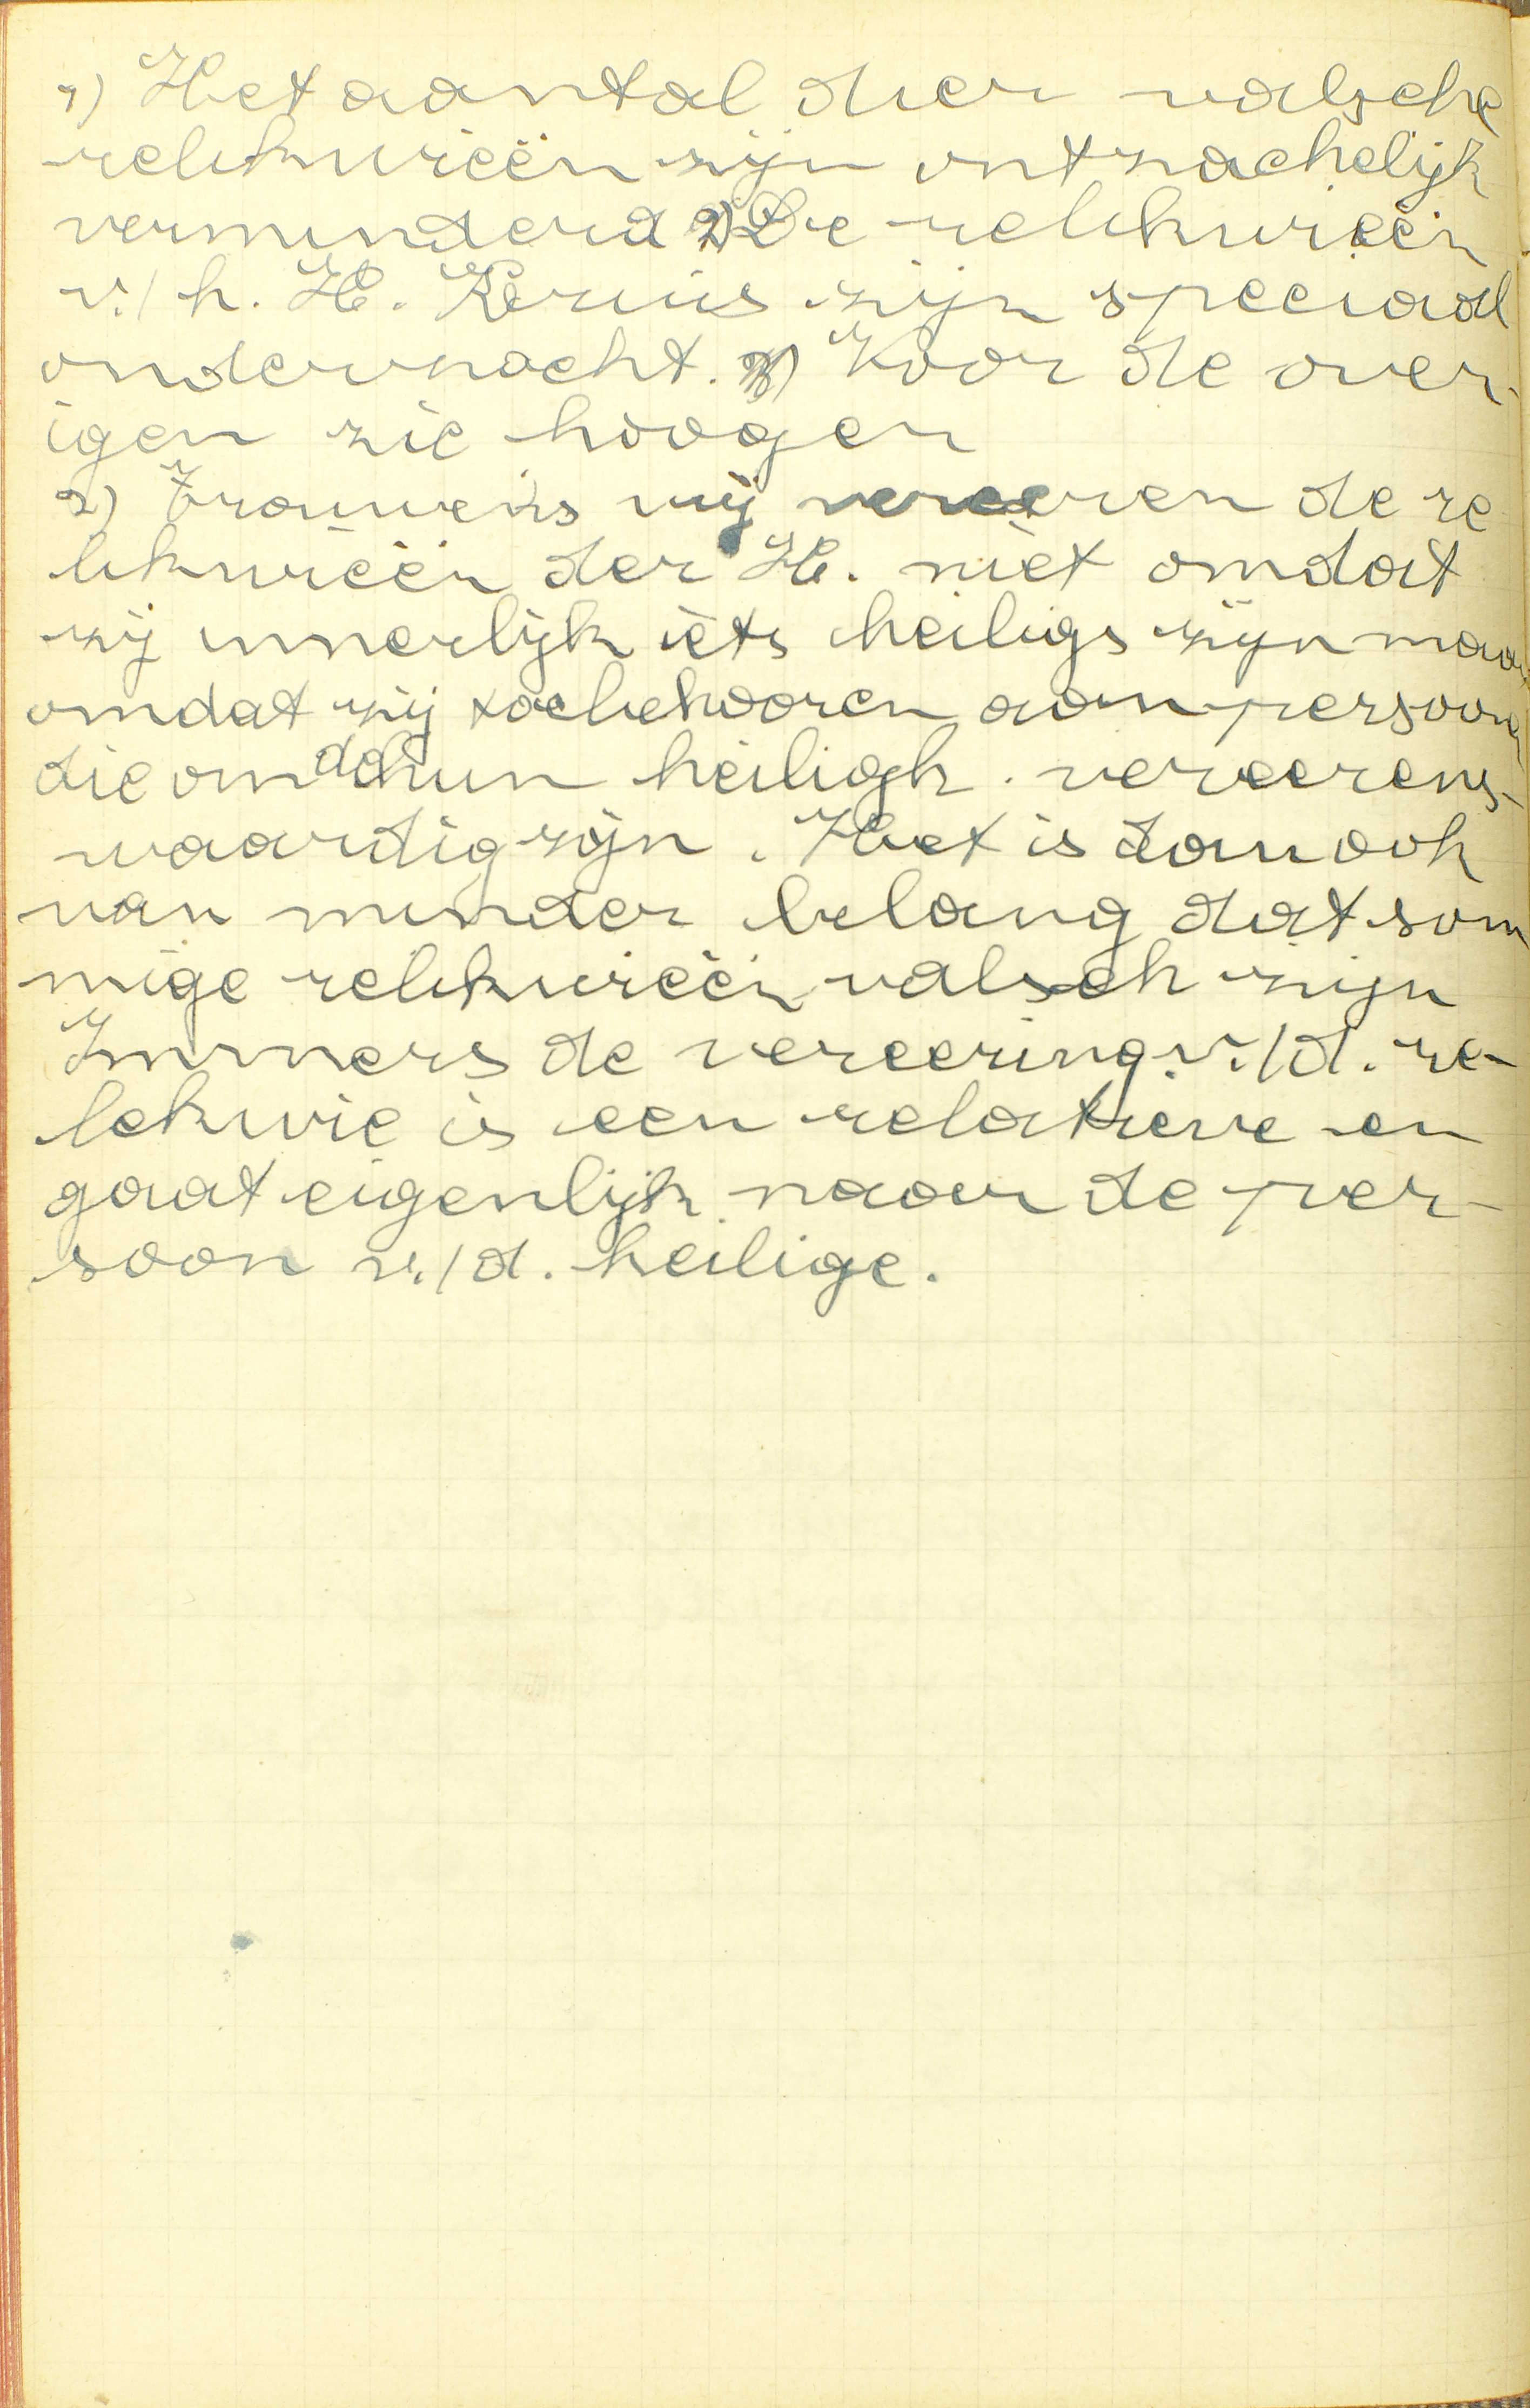 1) Het aantal der valsche
relikwieën zijn ontzachelijk
verminderd 2) De relikwieën
v./h. H. Kruis zijn speciaal
onderzocht. 3) Voor de over-
igen zie hooger
2) Trouwens wij vereeren de re
likwieën der H. niet omdat
zij innerlijk iets heiligs zijn maar
omdat zij toebehooren aan persoonen
die om hun heiligh. vereerens-
waardig zijn. Het is dan ook
van minder belang dat som
mige relikwieën valsch zijn
Immers de vereering v./d. re-
lekwie is een relatieve en
gaat eigenlijk naar de per-
soon v./d. heilige.